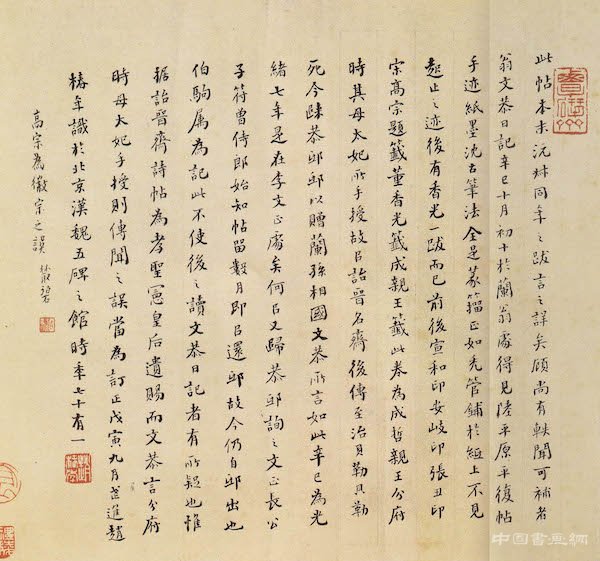 此帖本末沅叔同年之跋言之詳矣顧尚有軼聞可補者
翁文恭日記辛巳十月初十於蘭翁處得見陸平原平復帖
手迹紙墨沈古筆法全是篆籀正如禿管鋪於紙上不見
起止之迹後有香光一跋而已前後宣和印安岐印張丑印
宗高宗題籤董香光籤成親王籤此卷為成哲親王分府
時其母太妃所手授故以詒晉名齋後傳至治貝勒貝勒
死今歸恭邸邸以贈蘭孫相國文恭所言如此辛巳為光
緒七年是在李文正處矣何以又歸恭邸詢之文正長公
子符曾侍郎始知帖留數月即以還邸故今仍自邸出也
伯駒属為記此不使後之讀文恭日記者有所疑也惟
据詒晉齋詩帖為孝聖憲皇后遺賜而文恭言分府
時母太妃手授則傳聞之誤當為訂正戊寅九月武進趙
椿年識於北京漢魏五碑之館時年七十有一
高宗為徽宗之誤
中国書画網